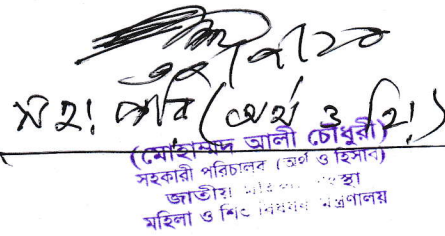 সহঃ পরি (অর্থ ও হিঃ)
(মোহাম্মদ আলী চৌধুরী)
সহকারী পরিচালক (অর্থ ও হিসাব)
জাতীয় মহিলা সংস্থা
মহিলা ও শিশু বিষয়ক মন্ত্রণালয়